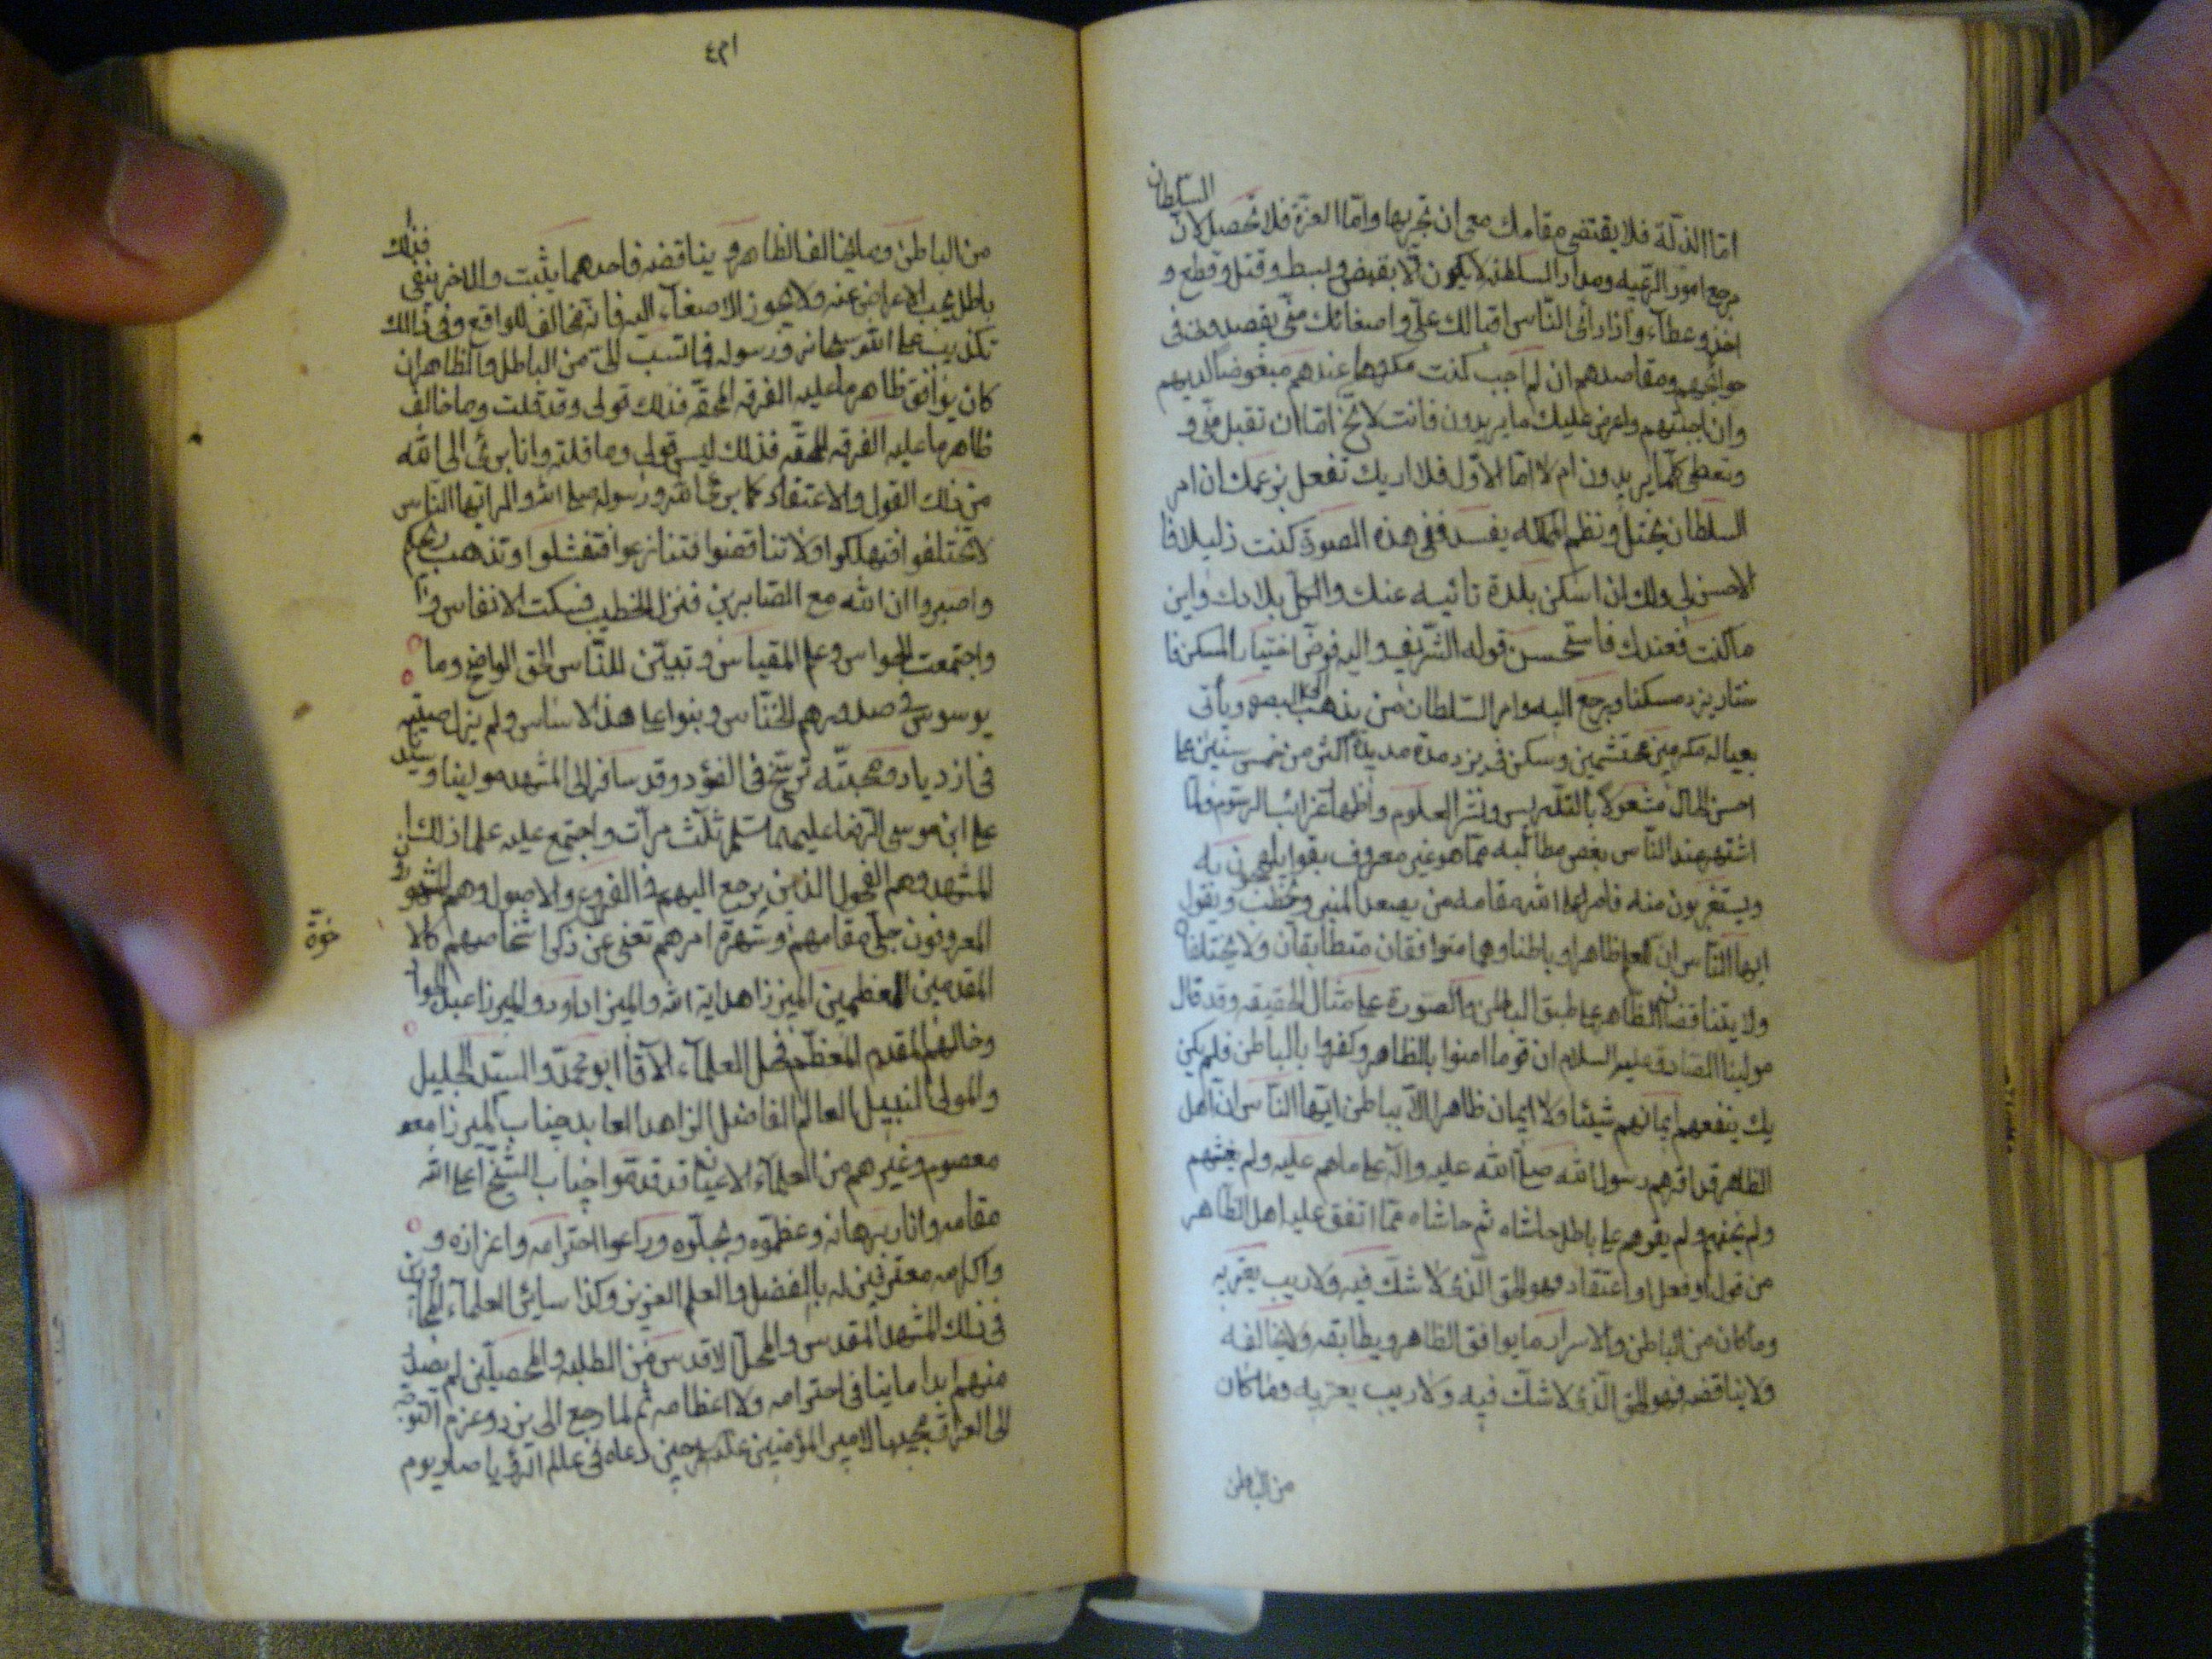 امّا الذلّة فلا يقتضي مقامك معي ان تجريها وامّا العزّة فلا تحصل لانّ السّلطان
مرجع امور الرّعيه ومدار السلطنه لا يكون الا بقبض وبسط وقتل وقطع و
اخذ وعطآء واذا رأى النّاس اقبالك علىّ واصغائك منّى يقصدونى فى
حوائجهم ومقاصدهم ان لم اجب كنت مكروها عندهم مبغوضا لديهم
وان اجبتهم واعرض عليك ما يريدون فانت لا تخ امّا ان تقبل منّى و
وتعطى كلما يريدون ام لا امّا الاوّل فلا اريك تفعل بزعمك ان امر
السلطان يختل ونظم المملكه يفسد ففى هذه الصورة كنت ذليلا فا
لاحسن لى ولك ان اسكن بلدة نائيه عنك والكل بلادك واين
ما كنت فعندك فاستحسن قوله الشّريف واليه فوّض اختيار المسكن فا
ختار يزد مسكنا ويرجع اليه وامر السّلطان من يذهب الى البصره ويأتى
بعياله مكرمين محتشمين وسكن فى يزد مدة مديدة اكثر من خمس سنين على
احسن الحال مشغولا بالتّدريس ونشر العلوم واظهار غرائب الرسوم ولمّا
اشتهر عند النّاس بعض مطالبه ممّا هو غير معروف بقوا يلهجون به
ويستغربون منه فامر اعلى الله مقامه من يصعد المنبر ويخطب ويقول
ايها النّاس انّ للعلم ظاهرا وباطنا وهما متوافقان متطابقان ولا يختلفان
ولا يتناقضان الظّاهر على طبق الباطن والصورة على مثال الحقيقه وقد قال
مولينا الصّادق عليه السلام ان قوما امنوا بالظاهر وكفروا بالباطن فلم يكن
يك ينفعهم ايمانهم شيئا ولا ايمان ظاهر الّا بباطن ايّها النّاس انّ اهل
الظاهر قد اقرّهم رسول الله صلّى الله عليه واله على ما هم عليه ولم يغشهم
ولم يخنهم ولم يقرهم على باطل حاشاه ثم حاشاه ممّا اتفق عليه اهل الظّاهر
من قول او فعل او اعتقاد وهو الحق الّذى لا شكّ فيه ولا ريب يعتريه
وما كان من الباطن والاسرار ما يوافق الظاهر ويطابقه ولا يخالفه
ولا يناقضه فهو الحق الّذى لا شكّ فيه ولا ريب يعتريه وما كان
من الباطن
٤٢١
من الباطن وما يخالف الظاهر ويناقضه فاحدهما يثبت والاخر ينفى فذلك
باطل يجب الاعراض عنه ولا يجوز الاصغآء اليه فانّه مخالف للواقع وفى ذلك
تكذيب على الله سبحانه ورسوله فما نسب الىّ من الباطل والظاهر ان
كان يوافق ظاهر ما عليه الفرقه المحقّه فذلك قولى وقد قلت وما خالف
ظاهر ما عليه الفرقه المحقّه فذلك ليس قولى وما قلته وانا برئ الى الله
من ذلك القول والاعتقاد كما برئ الله ورسوله صلى الله واله ايّها النّاس
لا تختلفوا فتهلكوا ولا تناقضوا فتنازعوا فتفشلوا وتذهب ريحكم
واصبروا ان الله مع الصّابرين فنزل الخطيب فسكت الانفاس
واجتمعت الحواس وعلم المقياس وتبيّن للنّاس الحق الواضح وما
يوسوس فى صدورهم الخنّاس وبنوا على هذا الاساس ولم يزل صيته
فى ازدياد ومحبّته ترسّخ فى الفؤد وقد سافر الى المشهد مولينا وسيّدنا
على ابن موسى الرّضا عليهما السّلم ثلث مرّات واجتمع عليه علماء ذلك
المشهد وهم الفحول الذين يرجع اليهم فى الفروع والاصول وهم المشهورون
المعروفون جلّ مقامهم وشهرة امرهم تغنى عن ذكر اشخاصهم كالا
خوة
المقدمين المعظمين الميرزا هداية الله والميرزا داود والميرزا عبد الجواد
وخالهم المقدم المعظّم فحل العلمآء الآقا ابو محمّد والسيّد الجليل
والمولى النبيل العالم الفاضل الزاهد العابد جناب الميرزا معصوم
معصوم وغيرهم من العلمآء الاعيان قد قدّموا جناب الشّيخ اعلى الله
مقامه وانار برهانه وعظّموه وبجّلوه وراعوا احترامه واعزازه و
واكرمه معترفين له بالفضل والعلم الغزير وكذا سائر العلمآء
فى ذلك المشهد المقدس والمحل الاقدس من الطلبه والمحصلين لم يصل
منهم ابدا ما ينافى احترامه ولا اعظامه ثم لما رجع الى يزد وعزم التوجّه
الى العراق مجيبا لامير المؤمنين عليه السّلم حين دعاه فى عالم الرّؤيا صار يوم